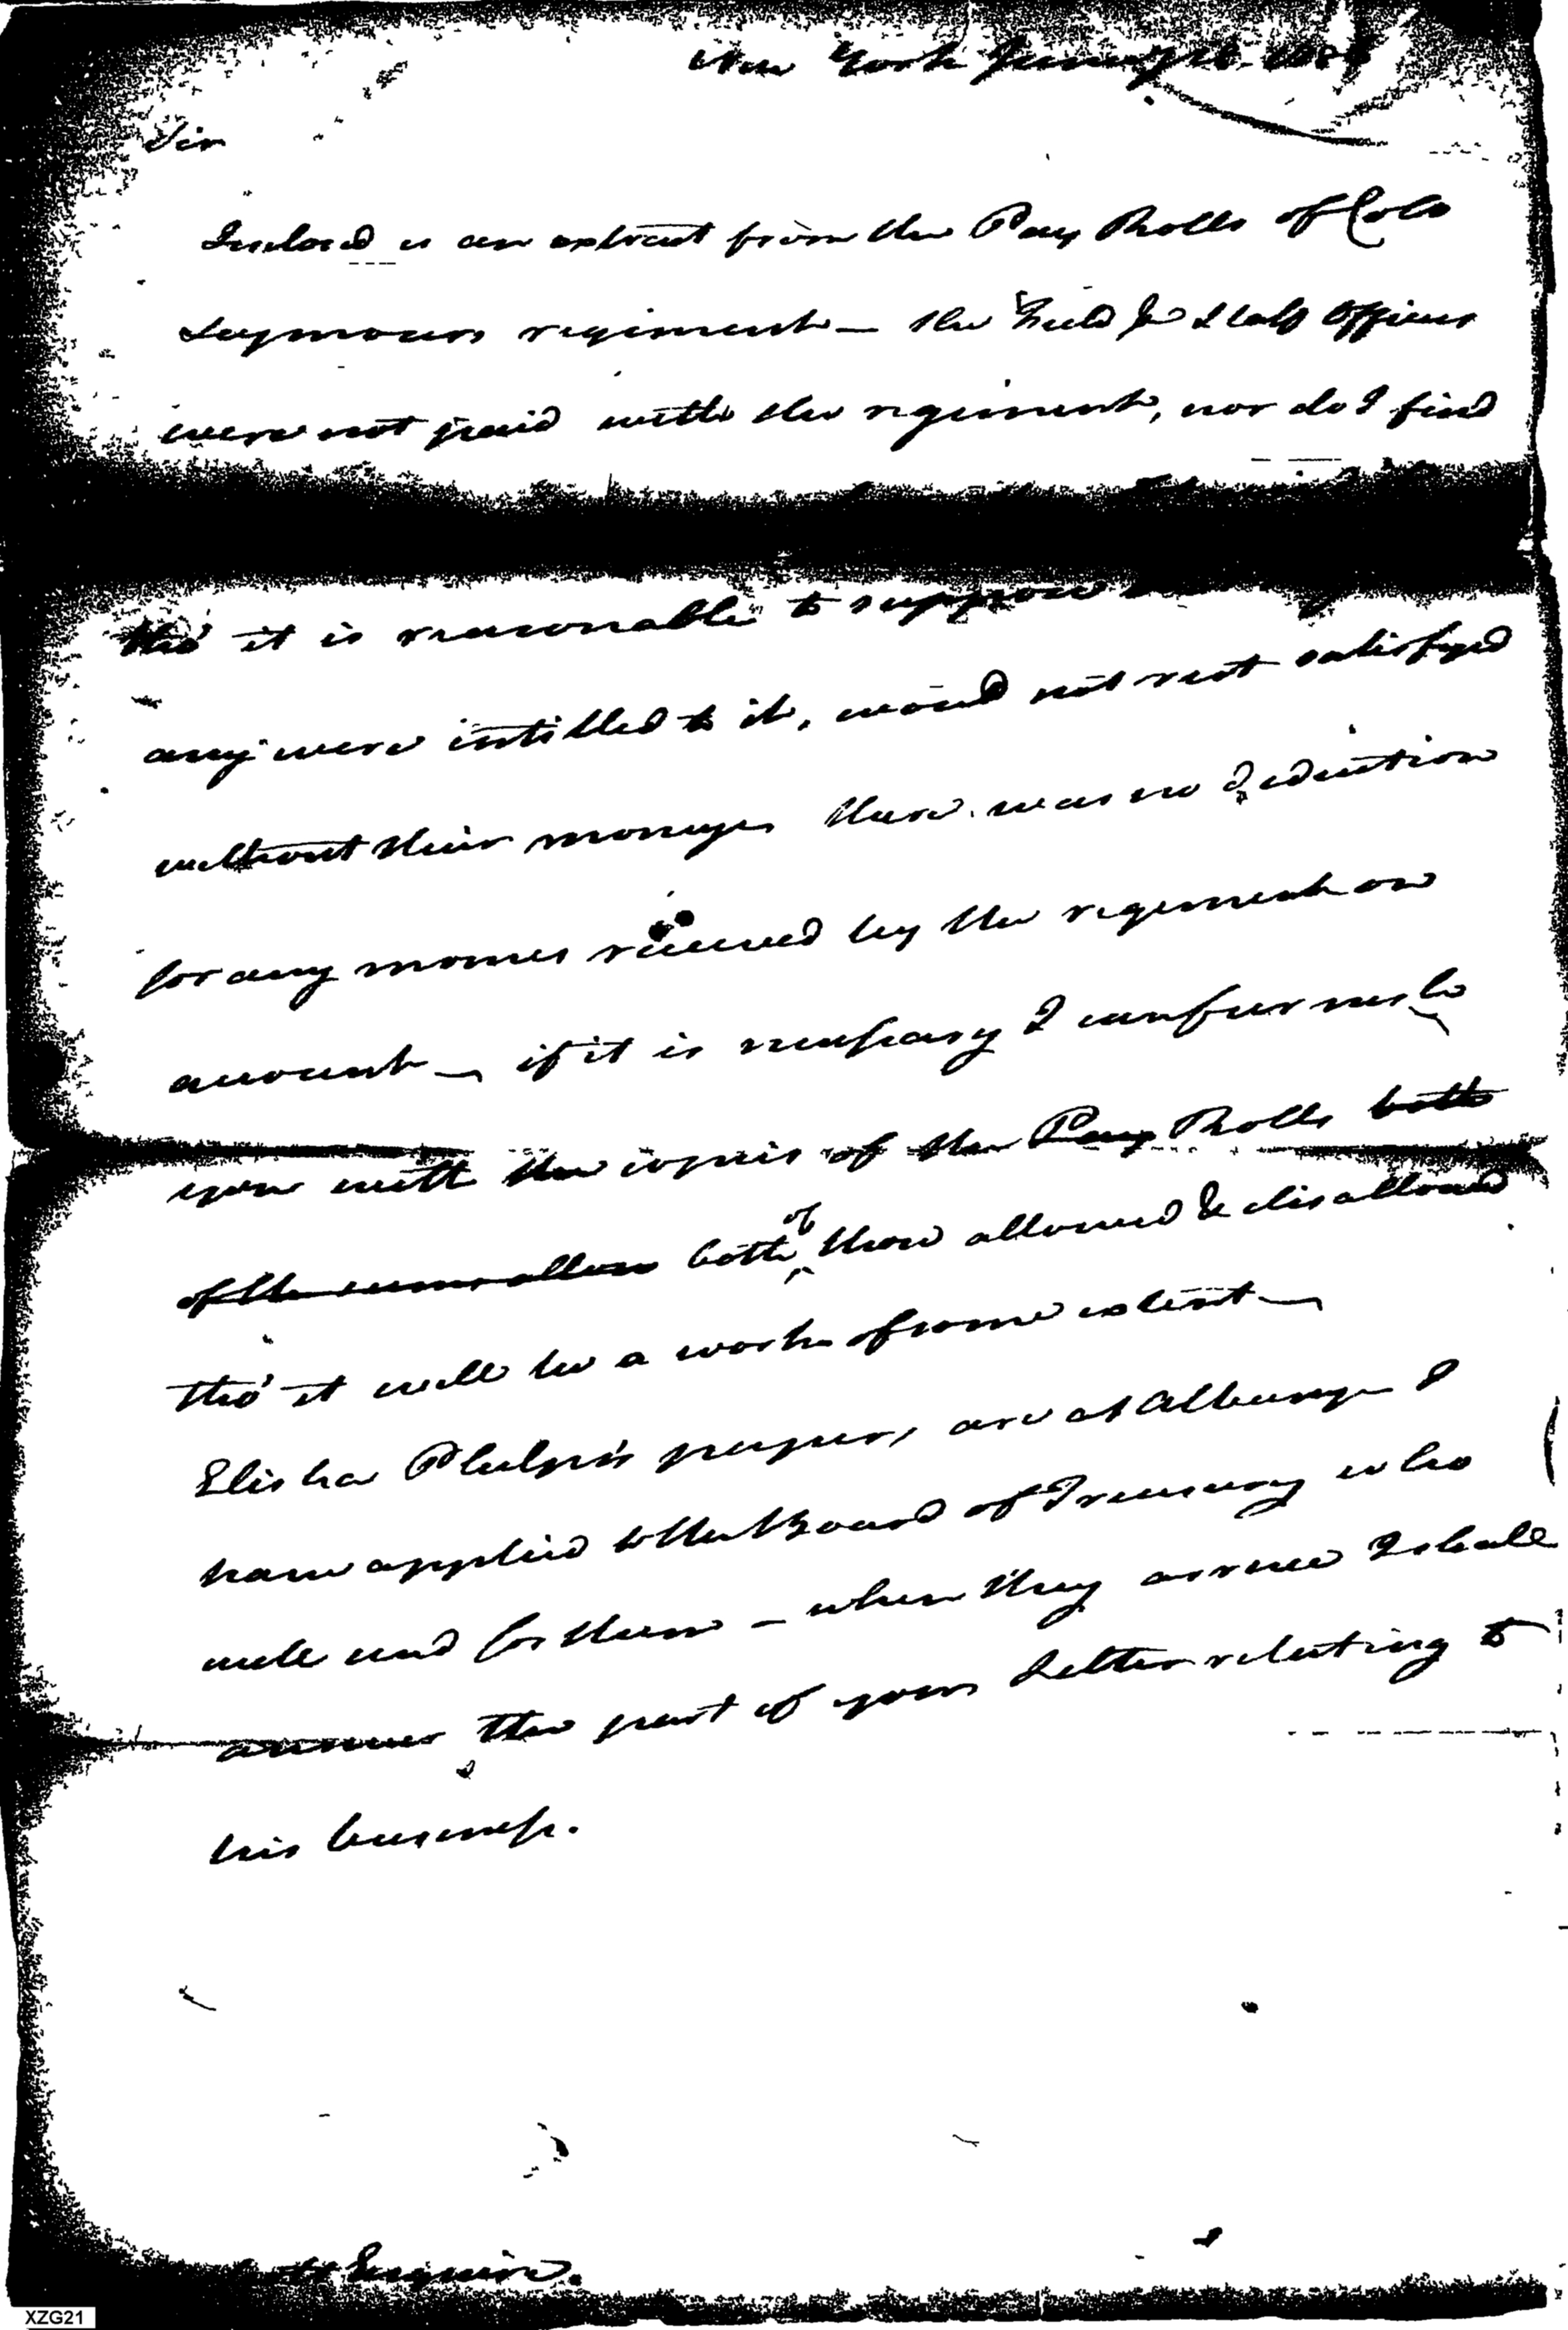 New York
Sir
Inclosed is an extract from the Pay Rolls of Colo
Seymours regiment — the Field & Staff Officers
were not paid with the regiment, nor do I find
tho' it is reasonable to suppose
any were intitled to it, woud not rest satisfyed
without their moneys there was no deduction
for any monies received by the regiment on
account — if it is necessary I can furnish
you with the copies of the Pay Rolls both
of the sums allow both of those allowed & disallowed
tho' it will be a work of some extent —
Elisha Phelps's papers, are at Albany I
have applied to the Board of Treasury who
will send for them — when they arrive I shall
answer the part of your Letter relating to
his business.
Esquire.
XZG21